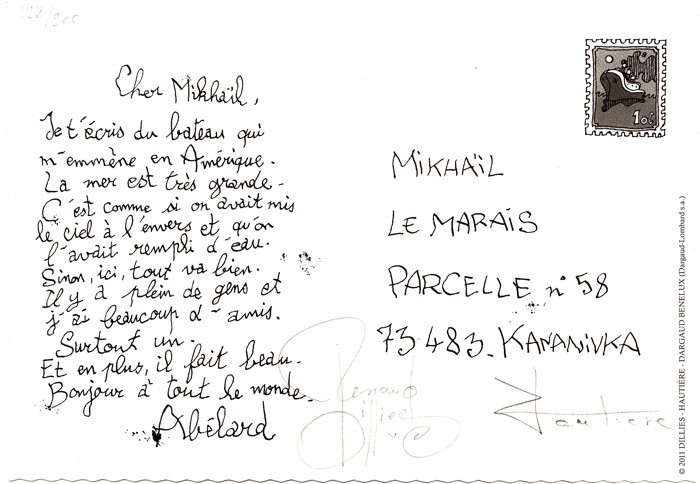 122/900
Cher Mikhaïl,
Je t'écris du bateau qui
m'emmène en Amérique.
La mer est très grande.
C'est comme si on avait mis
le ciel à l'envers et qu'on
l'avait rempli d'eau.
Sinon, ici, tout va bien.
Il y a plein de gens et
j'ai beaucoup d'amis.
Surtout un.
Et en plus, il fait beau.
Bonjour à tout le monde.
Abélard
10c
MIKHAÏL
LE MARAIS
PARCELLE n°58
73 483. KANANIVKA
Renaud
Dillies
Hautière
© 2011 DILLIES - HAUTIÈRE - DARGAUD BENELUX (Dargaud-Lombard s.a.)